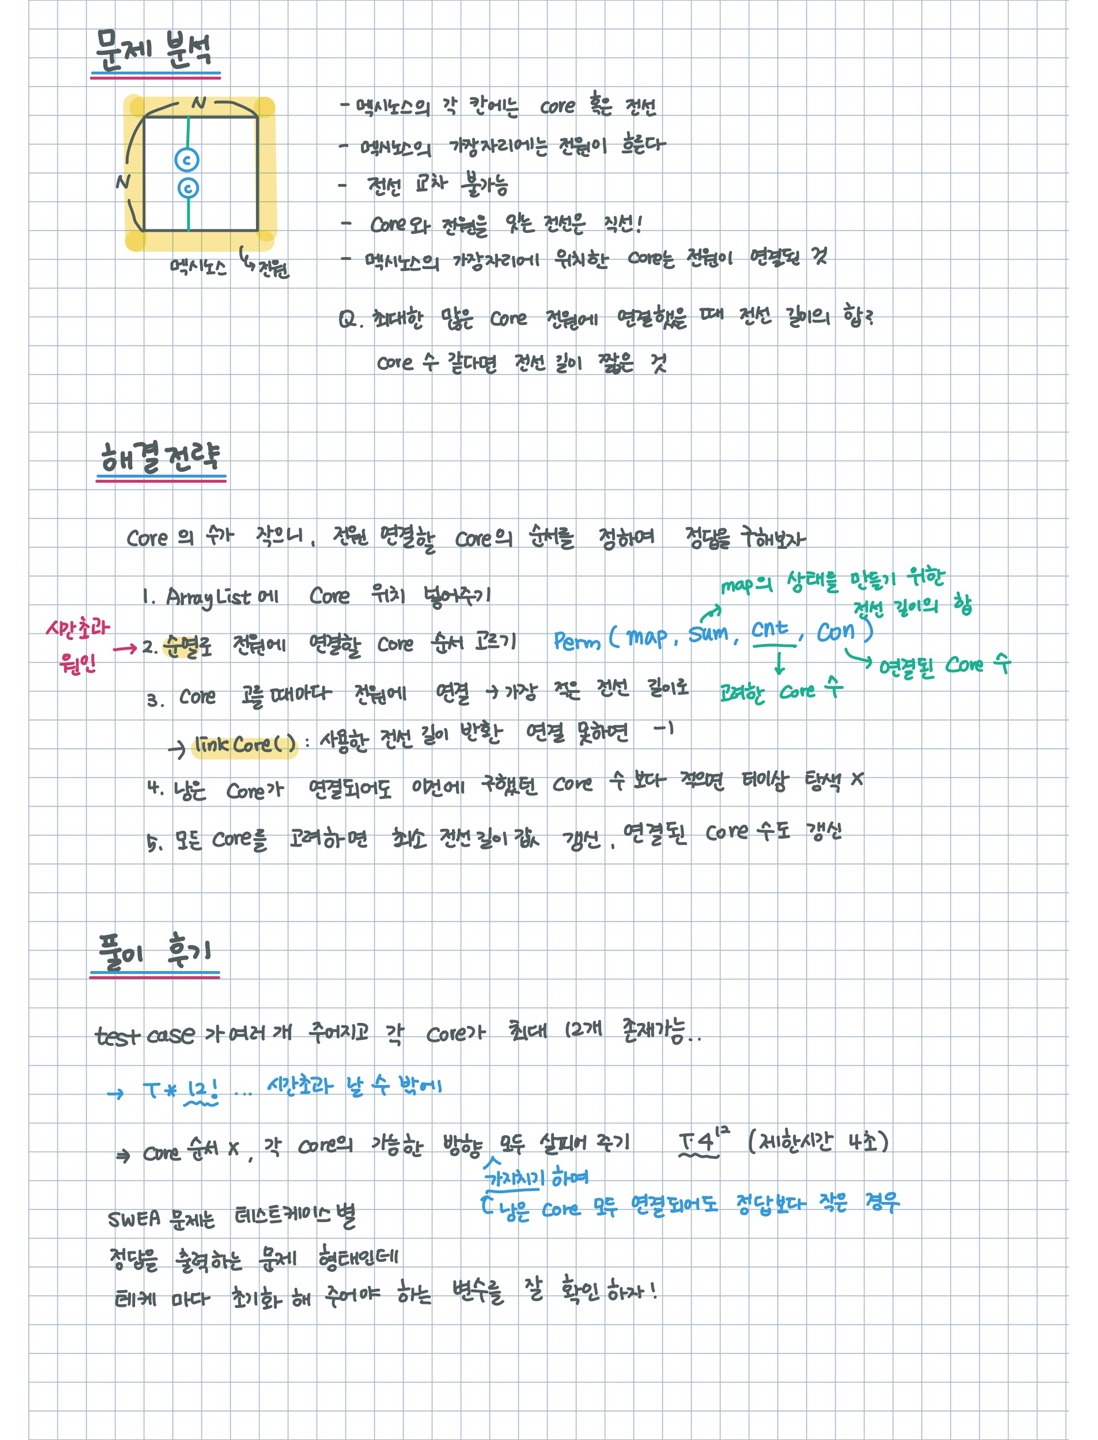 문제 분석
N
N
C
C
멕시노스 전원
- 멕시노스의 각 칸에는 core 혹은 전선
- 멕시노스의 가장자리에는 전원이 흐른다
- 전선 교차 불가능
- Core와 전원을 잇는 전선은 직선!
- 멕시노스의 가장자리에 위치한 Core는 전원이 연결된 것
Q. 최대한 많은 Core 전원에 연결했을 때 전선 길이의 합?
Core 수 같다면 전선 길이 짧은 것
해결전략
Core의 수가 작으니, 전원 연결할 Core의 순서를 정하여 정답을 구해보자
1. ArrayList에 Core 위치 넣어주기
map의 상태를 만들기 위한
전선 길이의 합
시간초과
원인
→ 2. 순열로 전원에 연결할 Core 순서 고르기 Perm (map, sum, cnt, con)
연결된 Core 수
고려한 Core 수
3. Core 고를 때마다 전원에 연결 → 가장 적은 전선 길이로
→ linkCore() : 사용한 전선 길이 반환 연결 못하면 -1
4. 남은 Core가 연결되어도 이전에 구했던 Core 수 보다 적으면 더이상 탐색 X
5. 모든 Core를 고려하면 최소 전선길이 값 갱신, 연결된 Core 수도 갱신
풀이 후기
test case가 여러 개 주어지고 각 Core가 최대 12개 존재가능..
→ T * 12! ... 시간초과 날 수 밖에
⇒ Core 순서 X, 각 Core의 가능한 방향 모두 살피어 주기 T4¹² (제한시간 4초)
가지치기 하며
남은 Core 모두 연결되어도 정답보다 작은 경우
SWEA 문제는 테스트케이스 별
정답을 출력하는 문제 형태인데
테케 마다 초기화 해 주어야 하는 변수를 잘 확인하자!